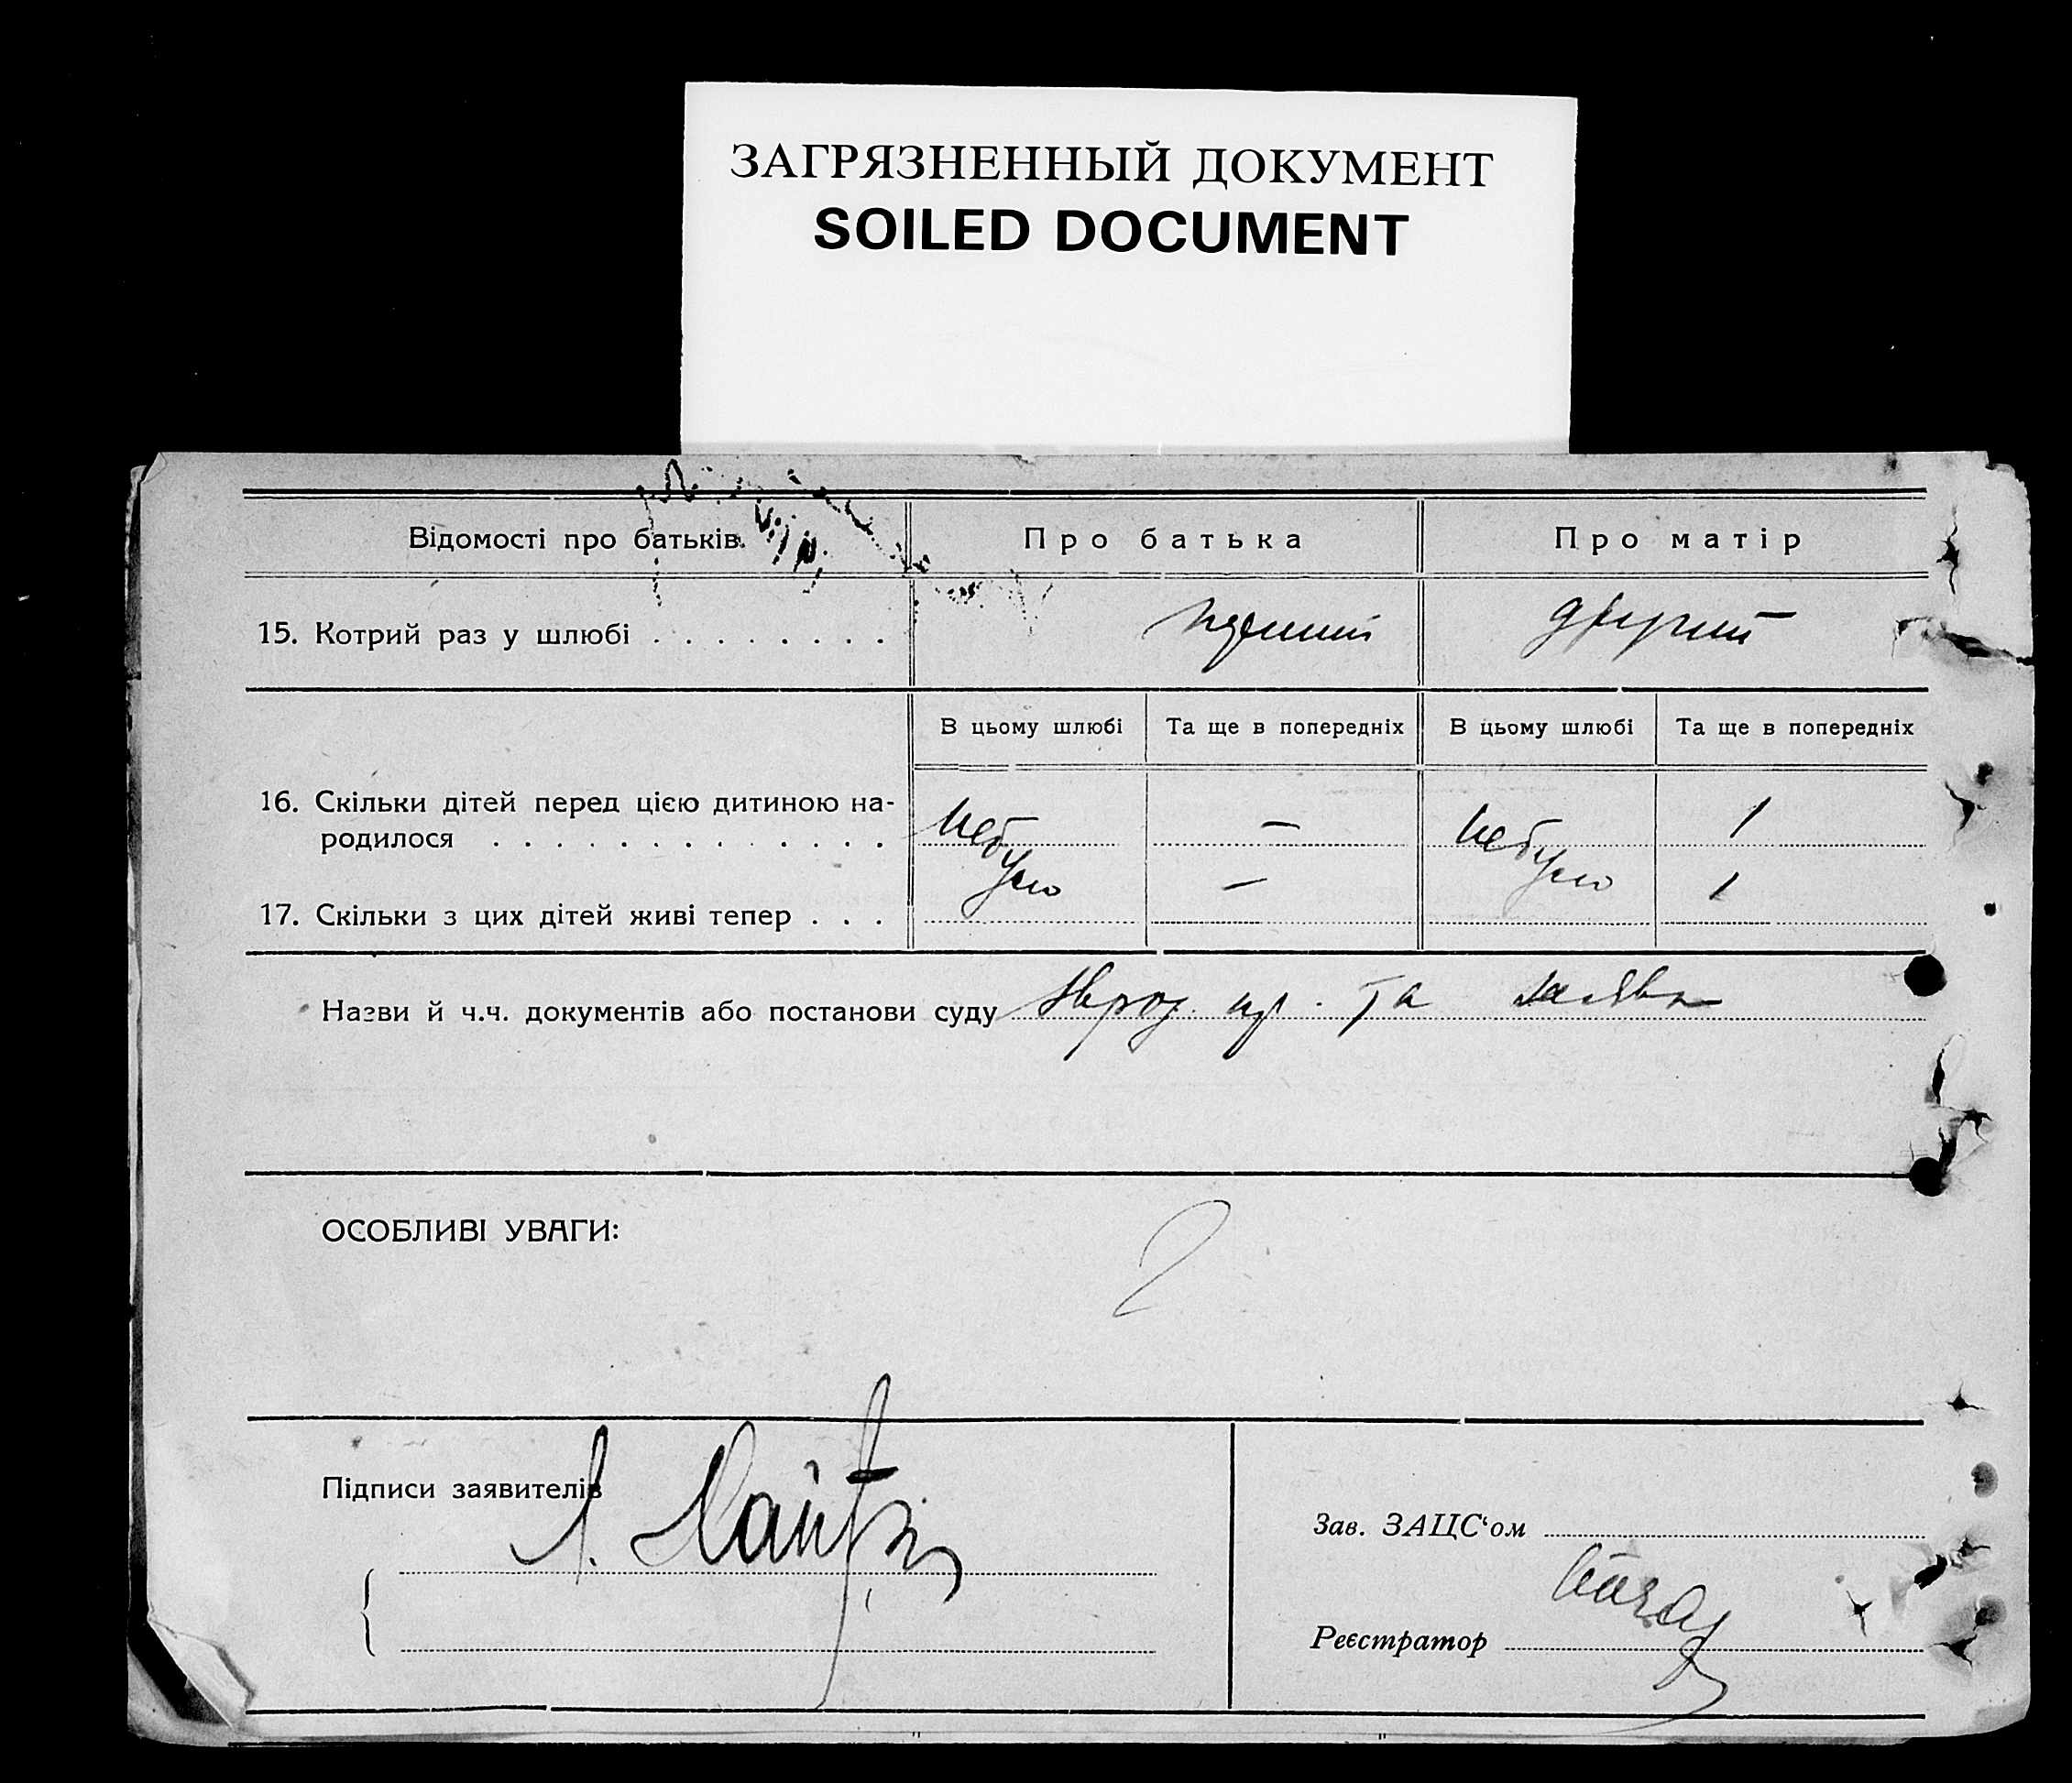 ЗАГРЯЗНЕННЫЙ ДОКУМЕНТ
SOILED DOCUMENT
Відомості про батьків. Про батька Про матір
15. Котрий раз у шлюбі . . . . . . . . перший другий
В цьому шлюбі Та ще в попередніх В цьому шлюбі Та ще в попередніх
16. Скільки дітей перед цією дитиною на-
родилося . . . . . . . . . . . . . не було — не було 1
17. Скільки з цих дітей живі тепер . . . — 1
Назви й ч.ч. документів або постанови суду та заява
ОСОБЛИВІ УВАГИ:
Підписи заявителів
Зав. ЗАЦС‘ом
Реєстратор